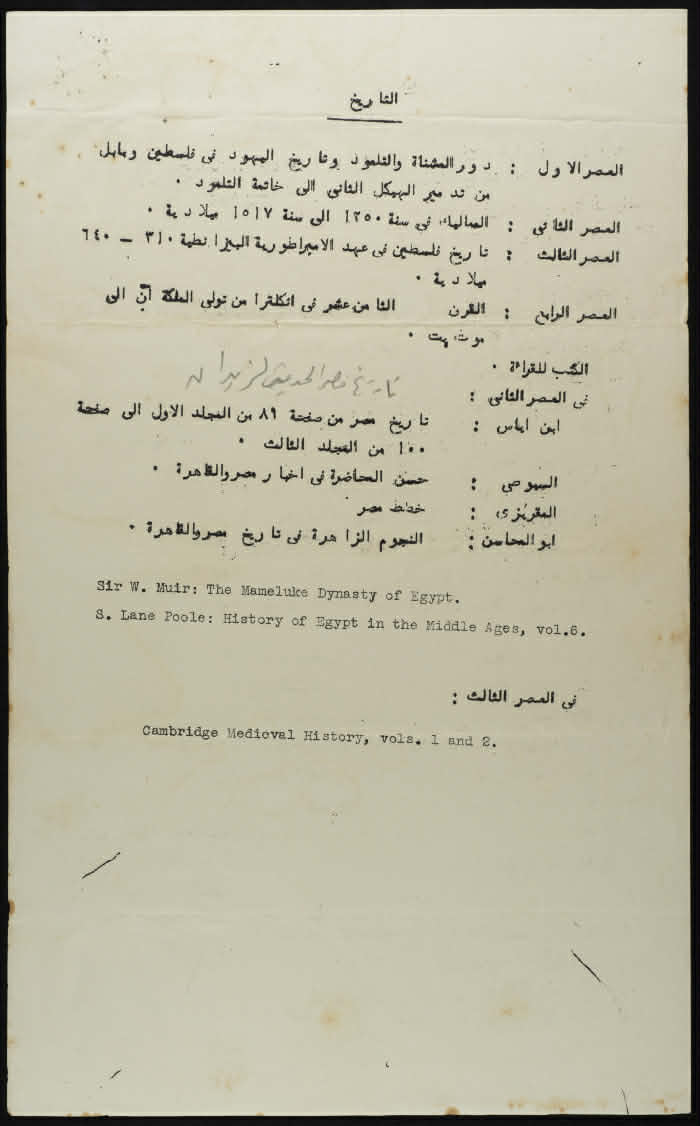 التاريخ
العصر الاول : دور المشناة والتلمود وتاريخ اليهود فى فلسطين وبابل
من تدمير الهيكل الثانى الى خاتمة التلمود .
العصر الثانى : المماليك فى سنة ١٢٥٠ الى سنة ١٥١٧ ميلادية .
العصر الثالث : تاريخ فلسطين فى عهد الامبراطورية البيزانطية ٣١٠ – ٦٤٠
ميلادية .
العصر الرابع : القرن الثامن عشر فى انكلترا من تولى الملكة آنّ الى
موت بت .
الكتب للقراءة .
تاريخ مصر الحديث لزيدان
فى العصر الثانى :
ابن اياس : تاريخ مصر من صفحة ٨٩ من المجلد الاول الى صفحة
١٠٠ من المجلد الثالث .
السيوطي : حسن المحاضرة فى اخبار مصر والقاهرة .
المقريزى : خطط مصر
ابو المحاسن : النجوم الزاهرة فى تاريخ مصر والقاهرة .
Sir W. Muir: The Mameluke Dynasty of Egypt.
S. Lane Poole: History of Egypt in the Middle Ages, vol.6.
فى العصر الثالث :
Cambridge Medieval History, vols. 1 and 2.